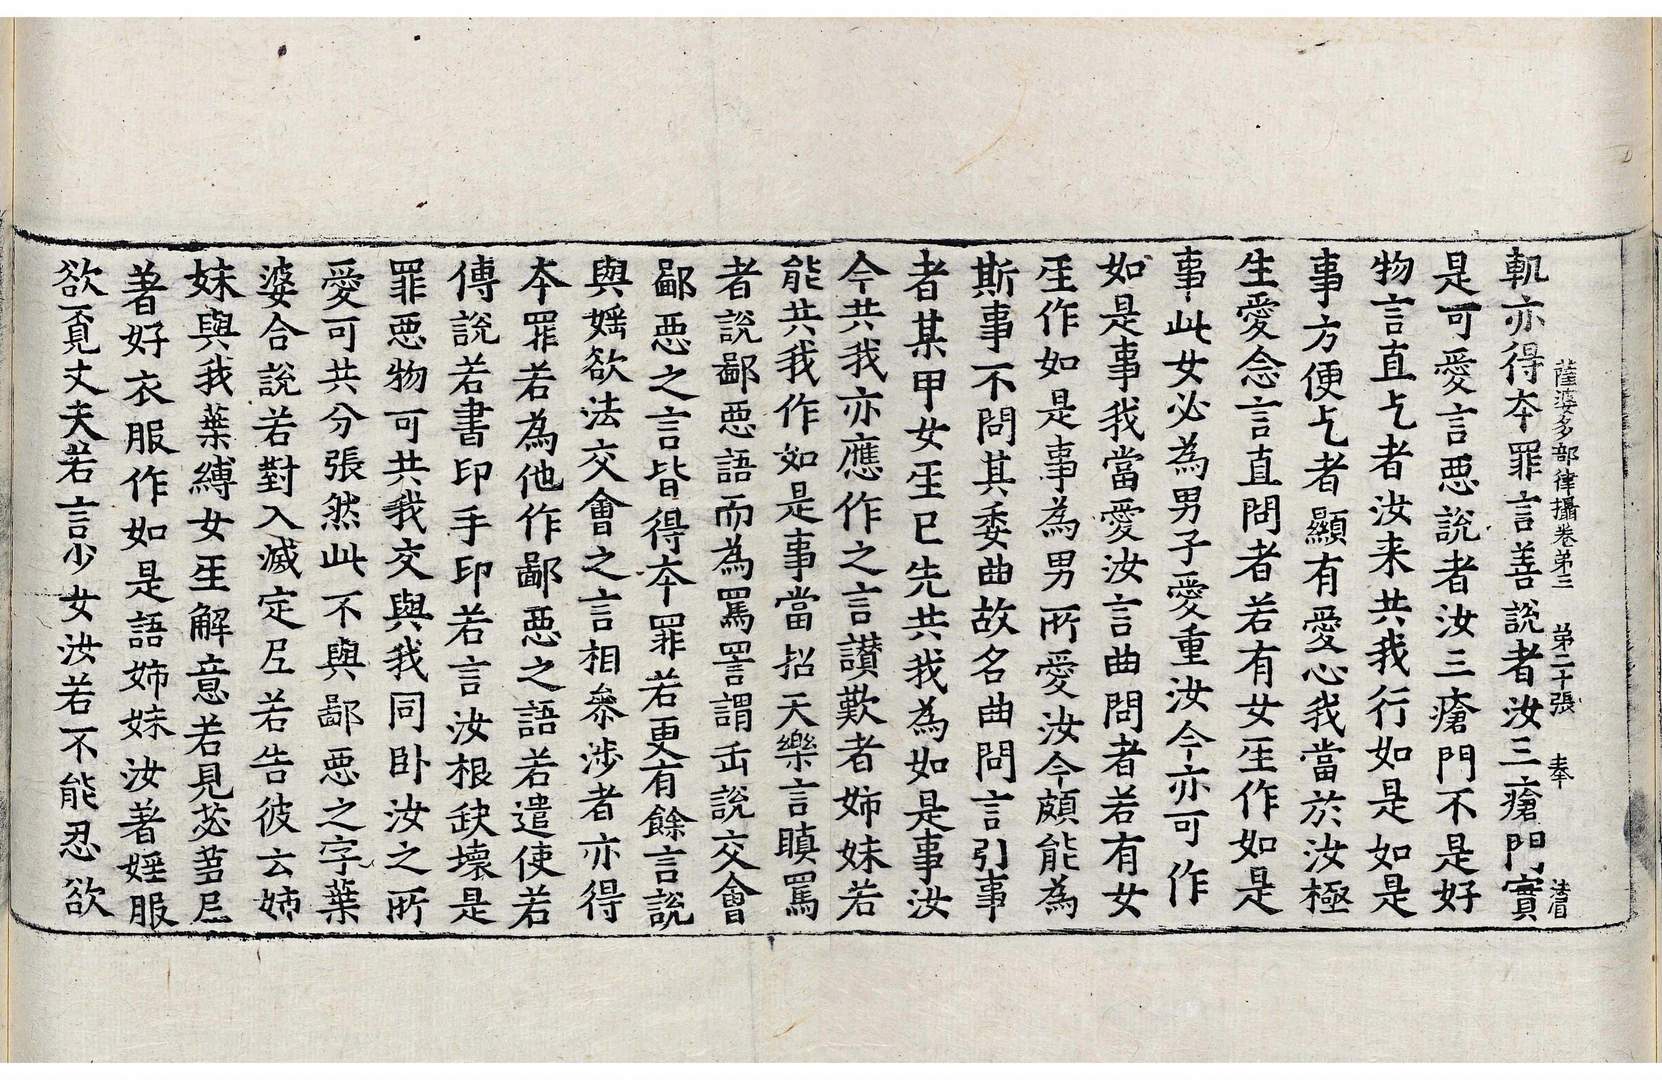 薩婆多部律攝卷第三　第二十張　奉　
軌亦得本罪言善說者汝三瘡門實
是可愛言惡說者汝三瘡門不是好
物言直乞者汝来共我行如是如是
事方便乞者顯有愛心我當於汝極
生愛念言直問者若有女𤯔作如是
事此女必為男子愛重汝今亦可作
如是事我當愛汝言曲問者若有女
𤯔作如是事為男所愛汝今頗能為
斯事不問其委曲故名曲問言引事
者某甲女𤯔已先共我為如是事汝
今共我亦應作之言讃歎者姊妹若
能共我作如是事當招天樂言瞋罵
者說鄙惡語而為罵詈謂岳說交會
鄙惡之言皆得本罪若更有餘言說
與婬欲法交會之言相叅涉者亦得
本罪若為他作鄙惡之語若遣使若
傳說若書印手印若言汝根缺壞是
罪惡物可共我交與我同卧汝之所
愛可共分張然此不與鄙惡之字葉
婆合說若對入滅定尼若告彼云姊
妹與我葉縛女𤯔解意若見苾蒭尼
著好衣服作如是語姊妹汝著婬服
欲覓丈夫若言少女汝若不能忍欲